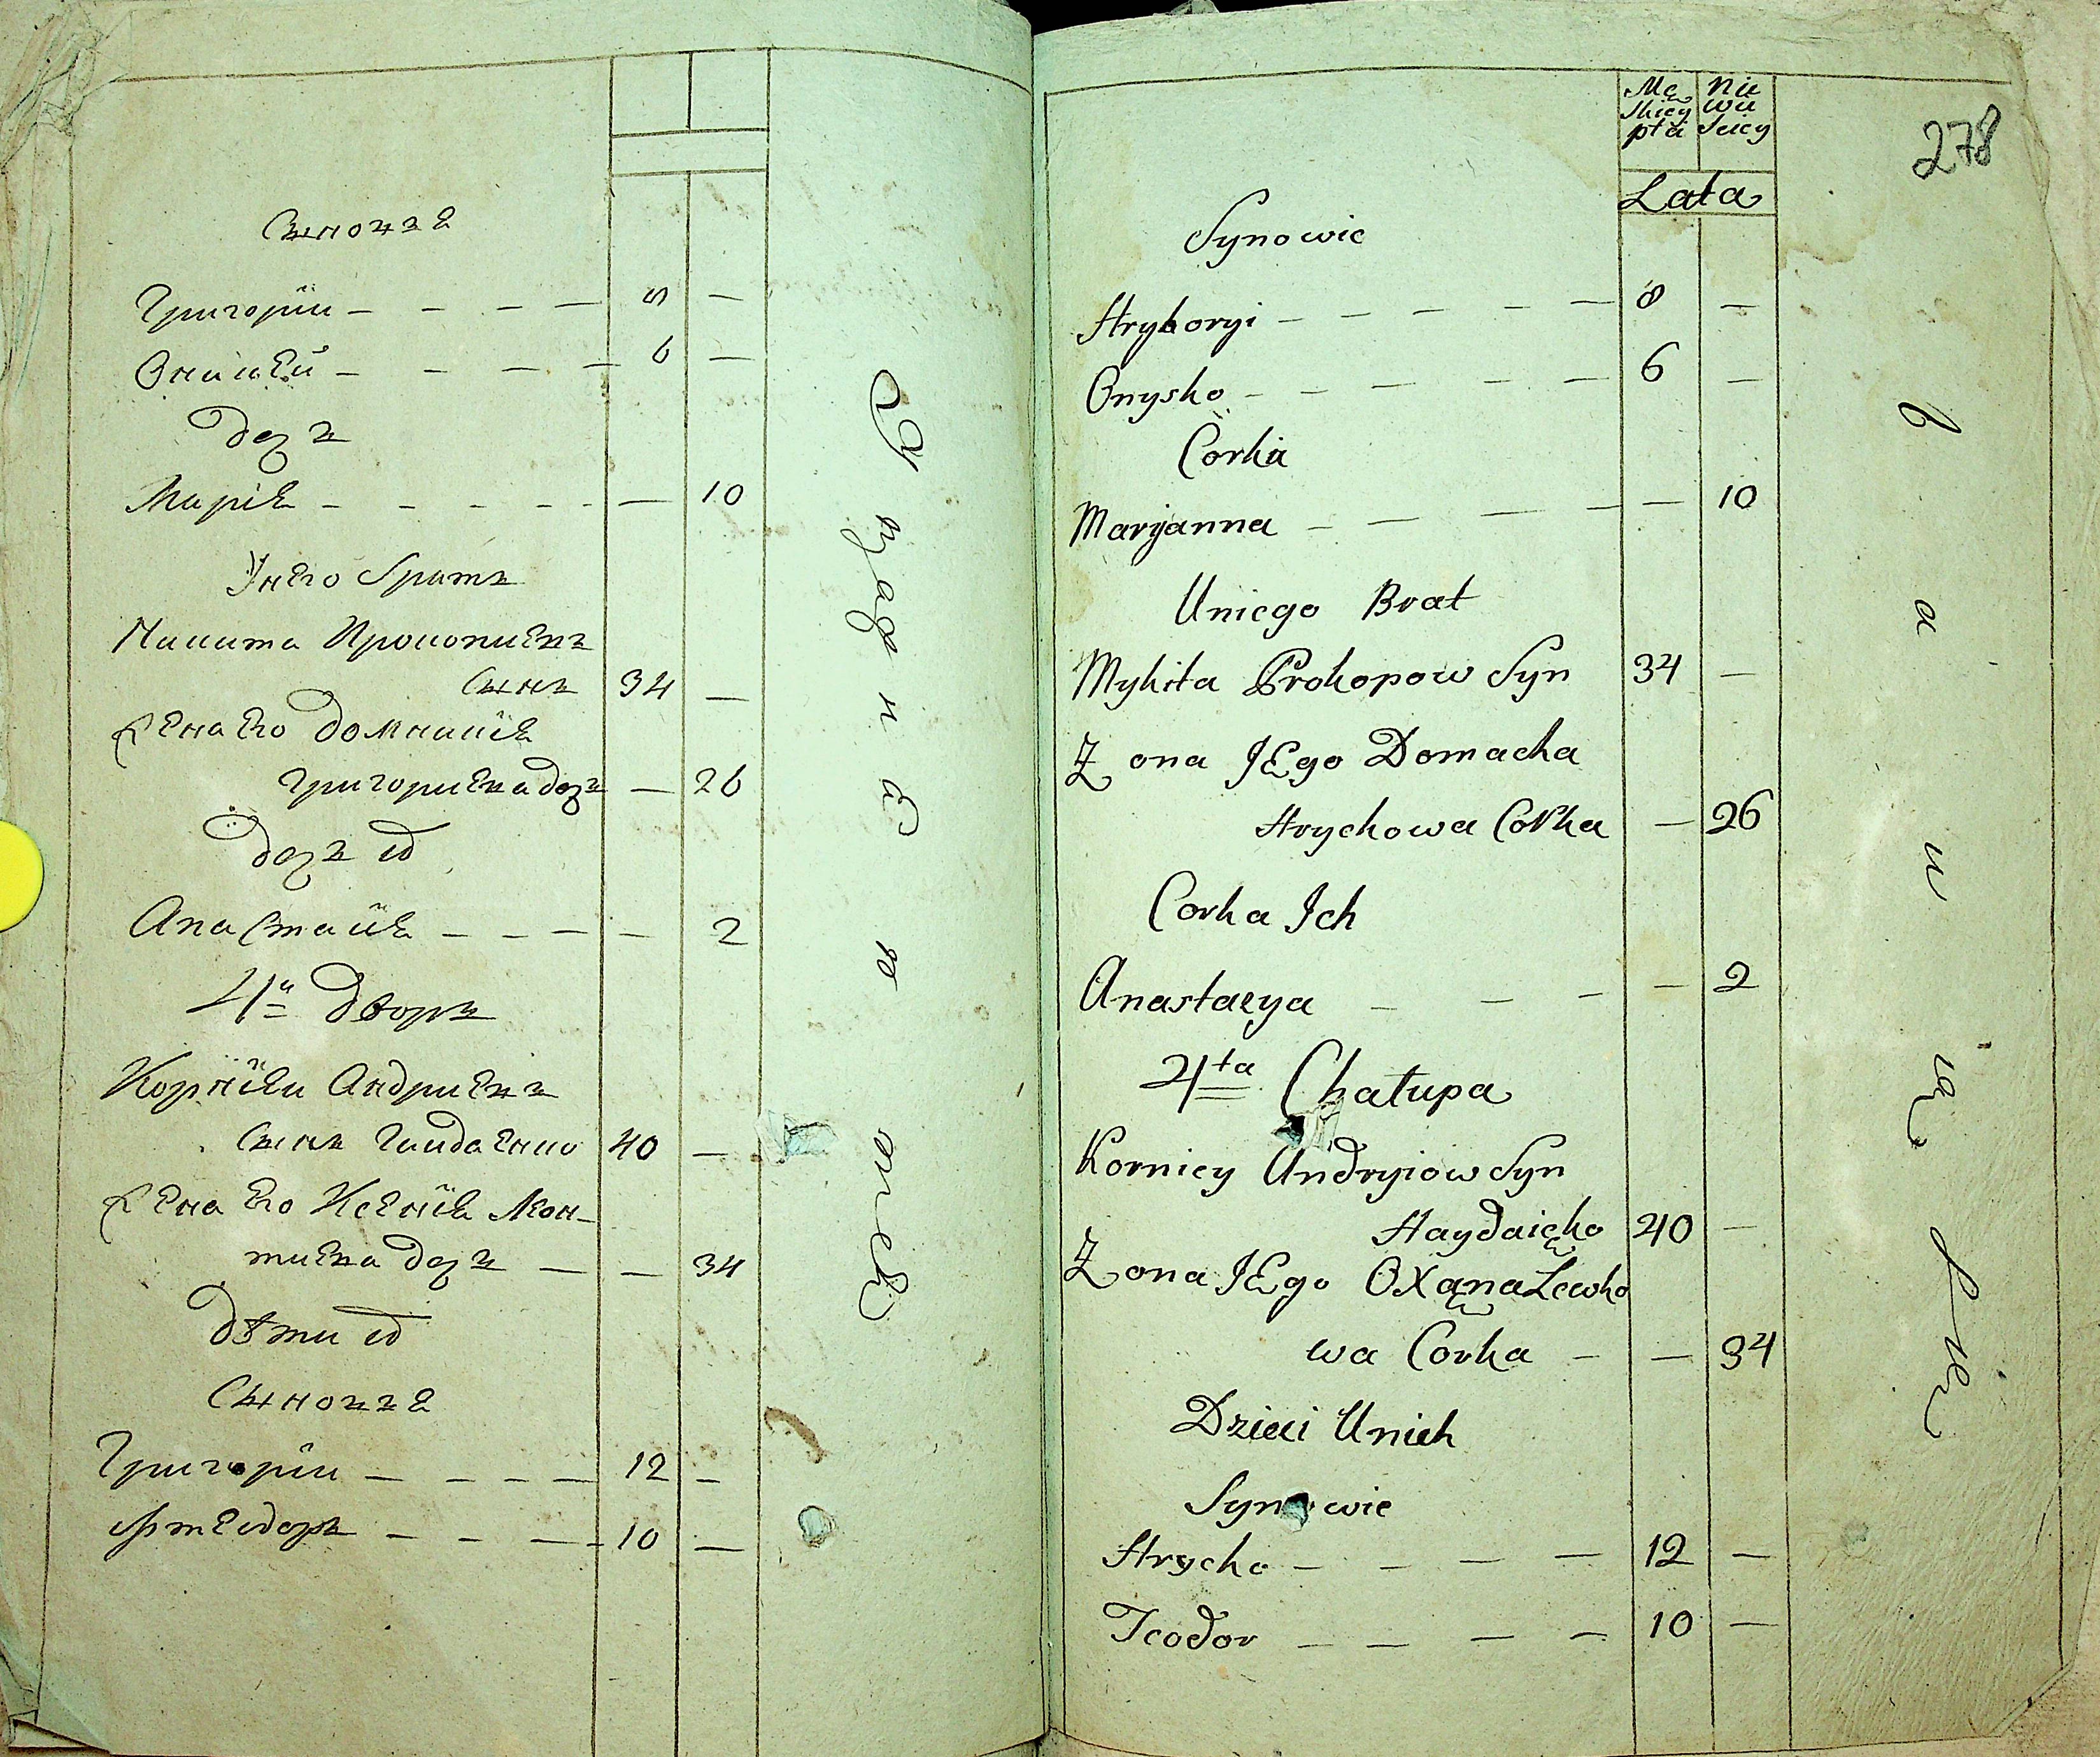 Сыновѣ
Григорій — — — — 8 —
Онисѣй — — — — 6 —
дочь
Марія — — — — — 10
У него братъ
Никита Прокопиевъ
сынъ 34 —
жена его Домникія
Григориева дочь — 26
дочь их
Анастасія — — — — 2
4й дворъ
Корнѣй Андриевъ
сынъ Гайдаенко 40 —
жена его Ксенія Леон-
тиева дочь — — 34
дѣти их
Сыновъя
Григорій — — — — 12 —
Ѳтеодоръ — — — — 10 —
278
Mę
skiey
płci
Nie
wie
ściey
Lata
Synowie
Hryhoryi — — — — — 8 —
Onysko — — — — — 6 —
Corka
Maryanna — — — — — 10
Uniego Brat
Mykita Prokopow Syn 34 —
Zona JEgo Domacha
Hrychowa Corka — 26
Corka Ich
Anastazya — — — — 2
4ta Chałupa
Korniey Andryiow Syn
Haydaięko 40 —
Zona JEgo OXana Lewko
wa Corka — — 34
Dzieci Unich
Synowie
Hrycko — — — — 12 —
Teodor — — — — 10 —